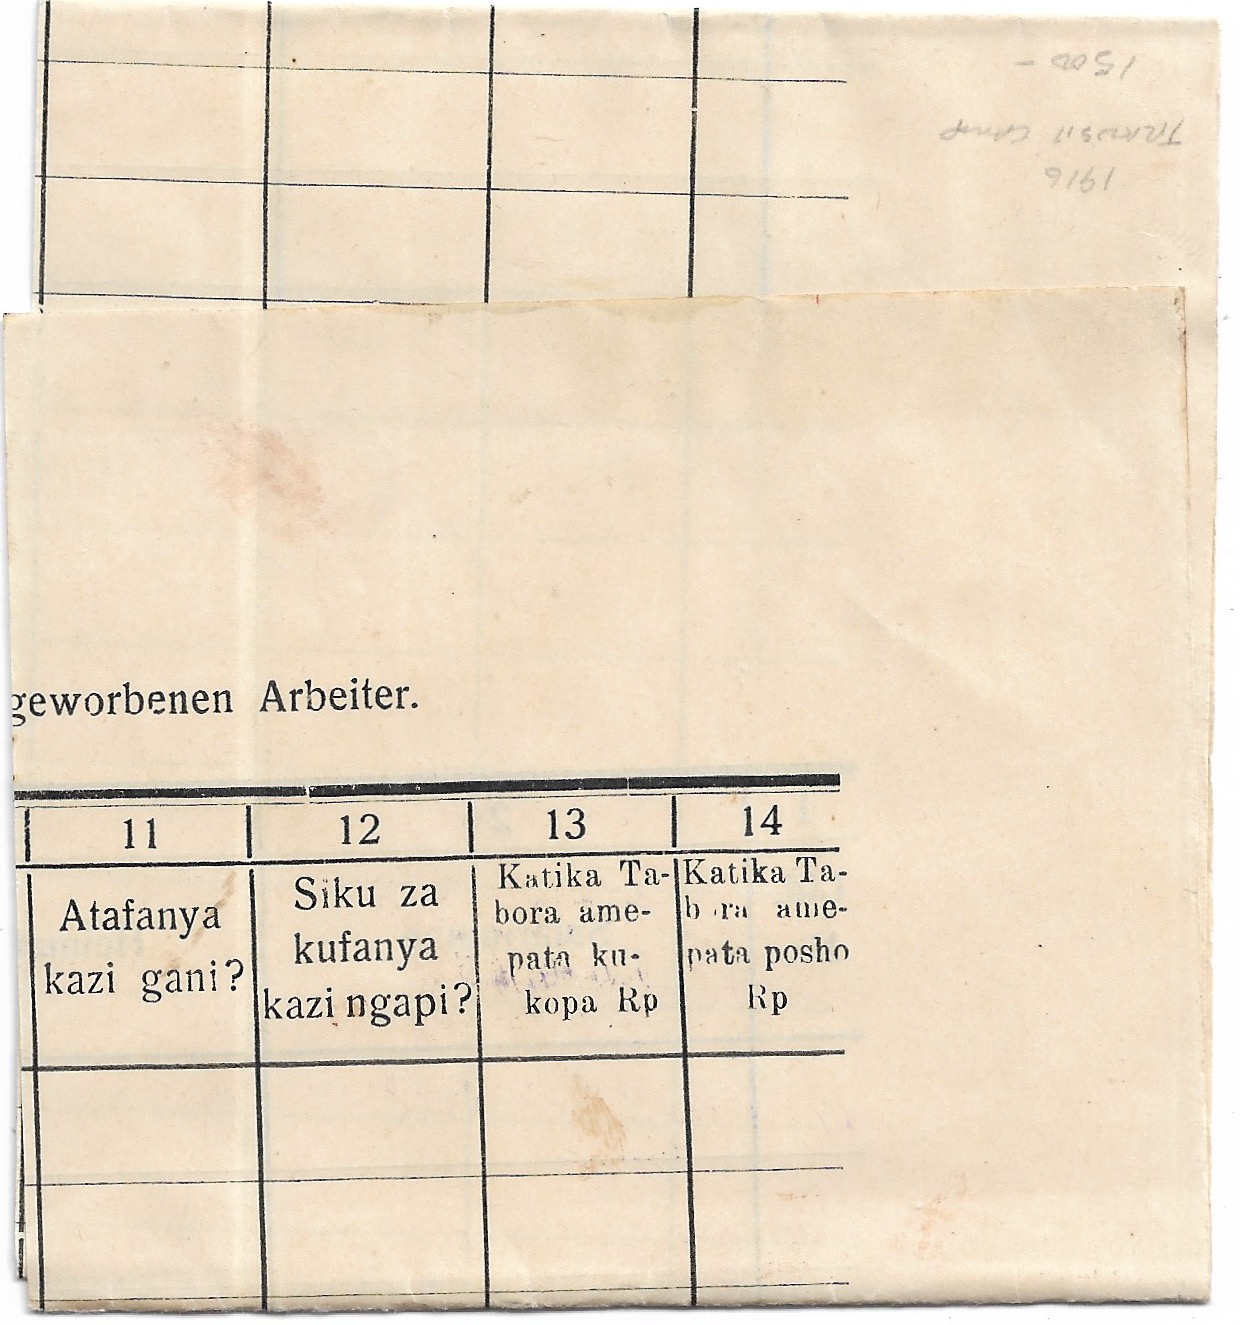 1500 -
TRANSIT CAMP
1916
geworbenen Arbeiter.
11 12 13 14
Atafanya
kazi gani?
Siku za
kufanya
kazi ngapi?
Katika Ta-
bora ame-
pata ku-
kopa Rp
Katika Ta-
bora ame-
pata posho
Rp